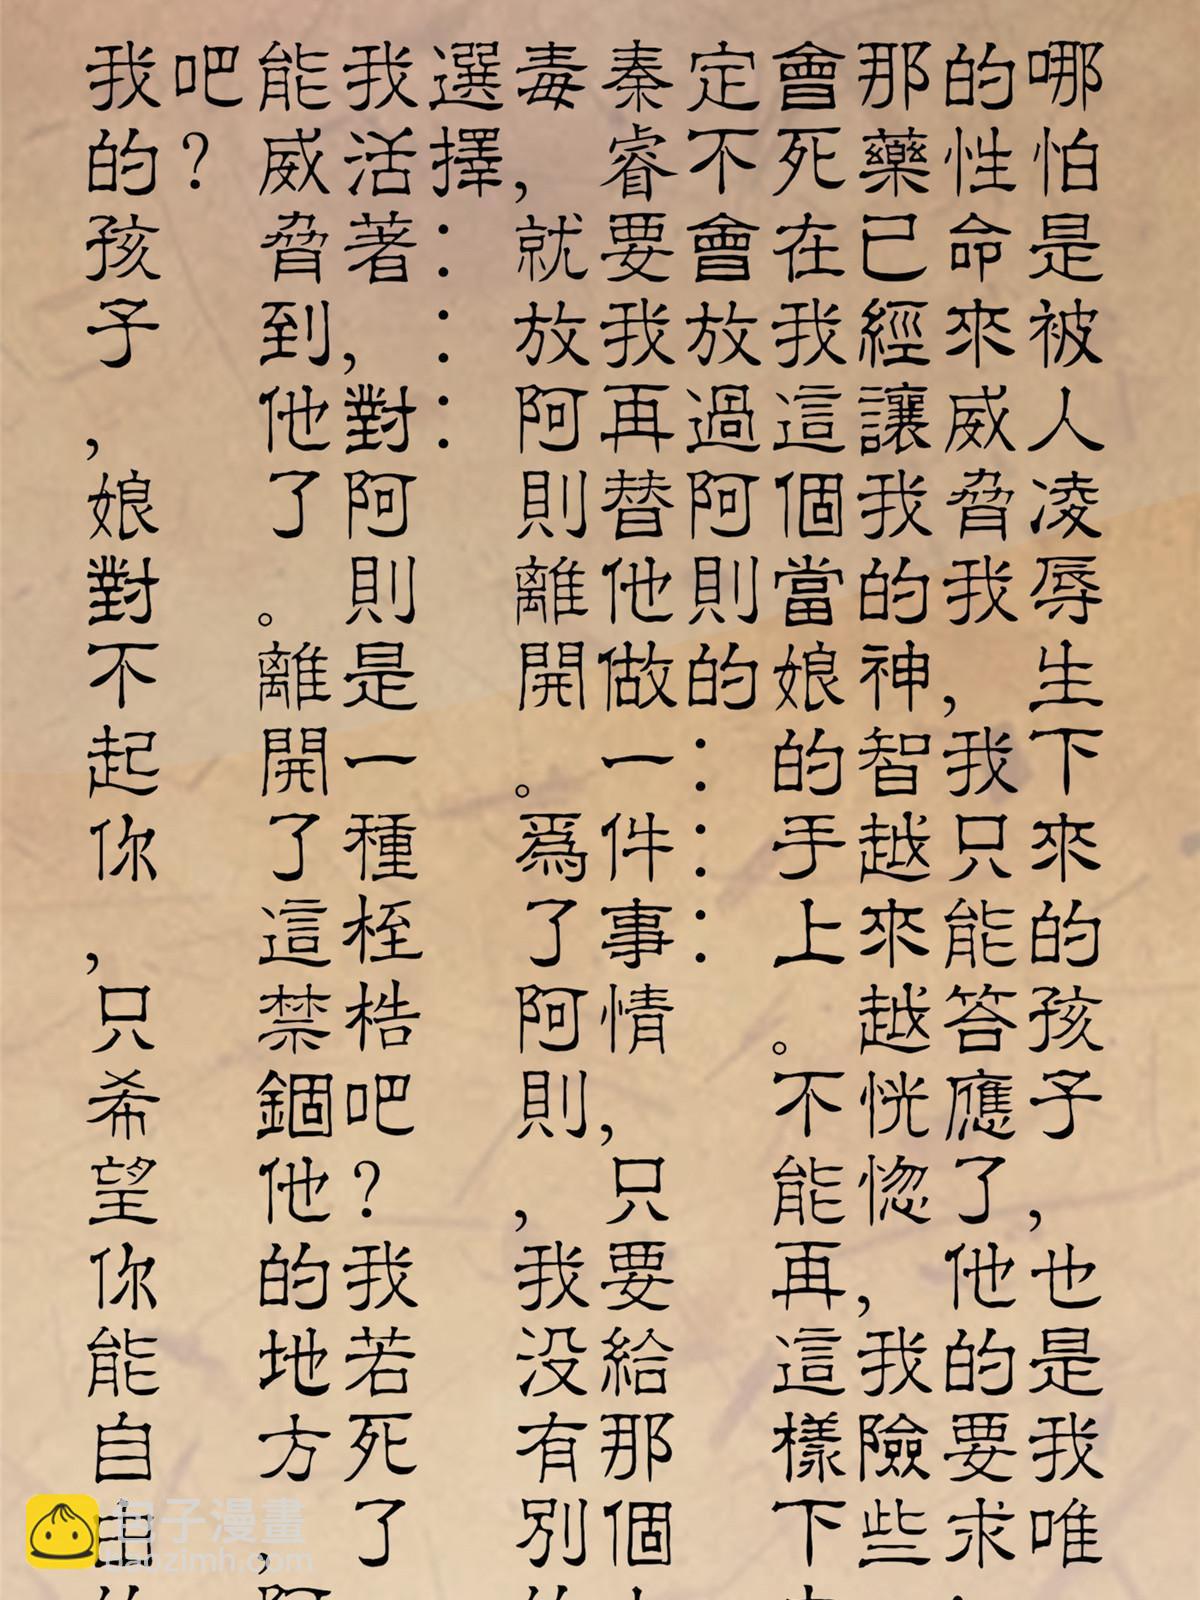 哪怕是被人凌辱生下來的孩子，也是我唯
的性命來威脅我，我只能答應了他的要求：
那藥已經讓我的神智越來越恍惚，我險些
會死在我這個當娘的手上。不能再這樣下
定不會放過阿則的：：：
秦睿要我再替他做一件事情，只要給那個
毒，就放阿則離開。爲了阿則，我没有別
選擇：：：
我活著，對阿則是一種桎梏吧？我若死了
能威脅到他了。離開了這禁錮他的地方，阿
吧？
我的孩子，娘對不起你，只希望你能自由
包子漫畫
baozimh.com